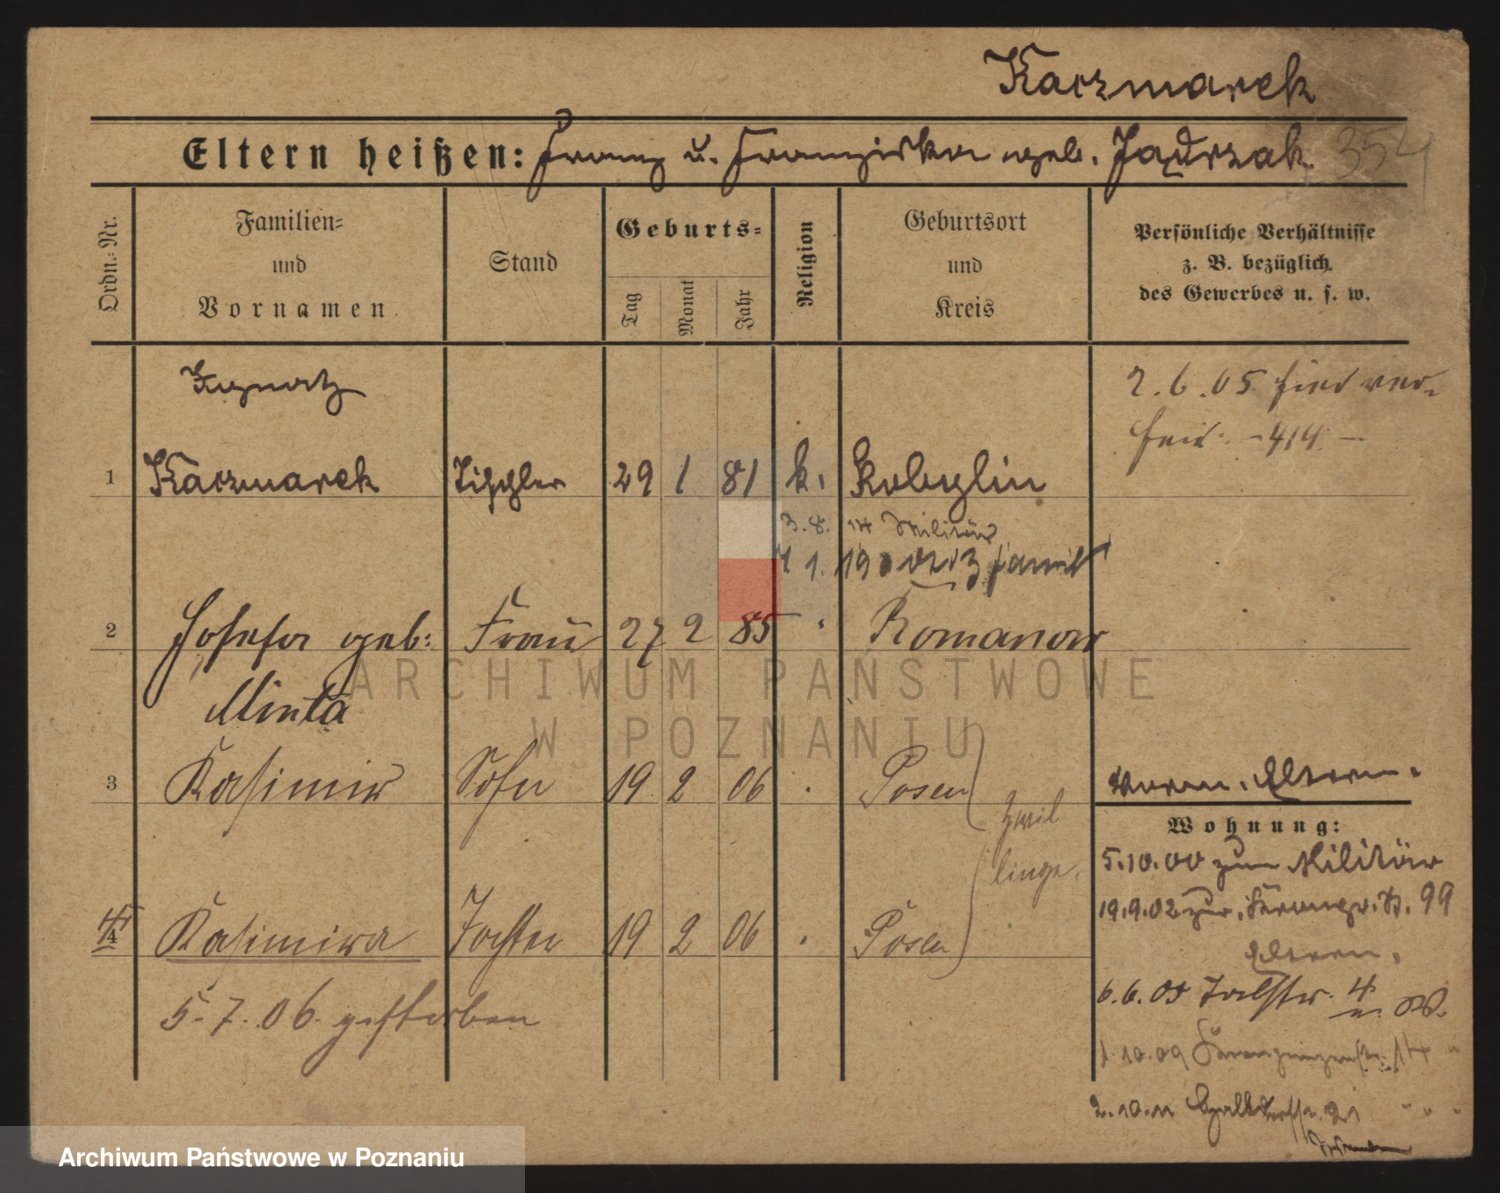 Kaczmarek
Eltern heißen: Franz u. Franziska geb. Jądrzak 354
Ordn.-Nr.
Familien-
und
Vornamen
Stand
Geburts-
Tag
Monat
Jahr
Religion
Geburtsort
und
Kreis
Persönliche Verhältnisse
z. B. bezüglich
des Gewerbes u. s. w.
Ignatz
2.6.05 hier ver-
heir. - 414 -
1 Kaczmarek Tischler 29 1 81 k. Kobylin
3.8. 14 Militär
7 1. 19
2 Josefa geb: Frau 27 2 85 " Romanow
Minta
3 Kasimir Sohn 19 2 06 . Posen
Zwil
linge.
4 Kasimira Tochter 19 2 06 . Posen
5.7.06. gestorben
Eltern.
Wohnung:
5.10.00 zum Militär
19.9.02 zur. 99
Eltern.
6.6.05 4 W.
1.10.09 14 "
2.10.11 21 " " "
ARCHIWUM PAŃSTWOWE
W POZNANIU
Archiwum Państwowe w Poznaniu